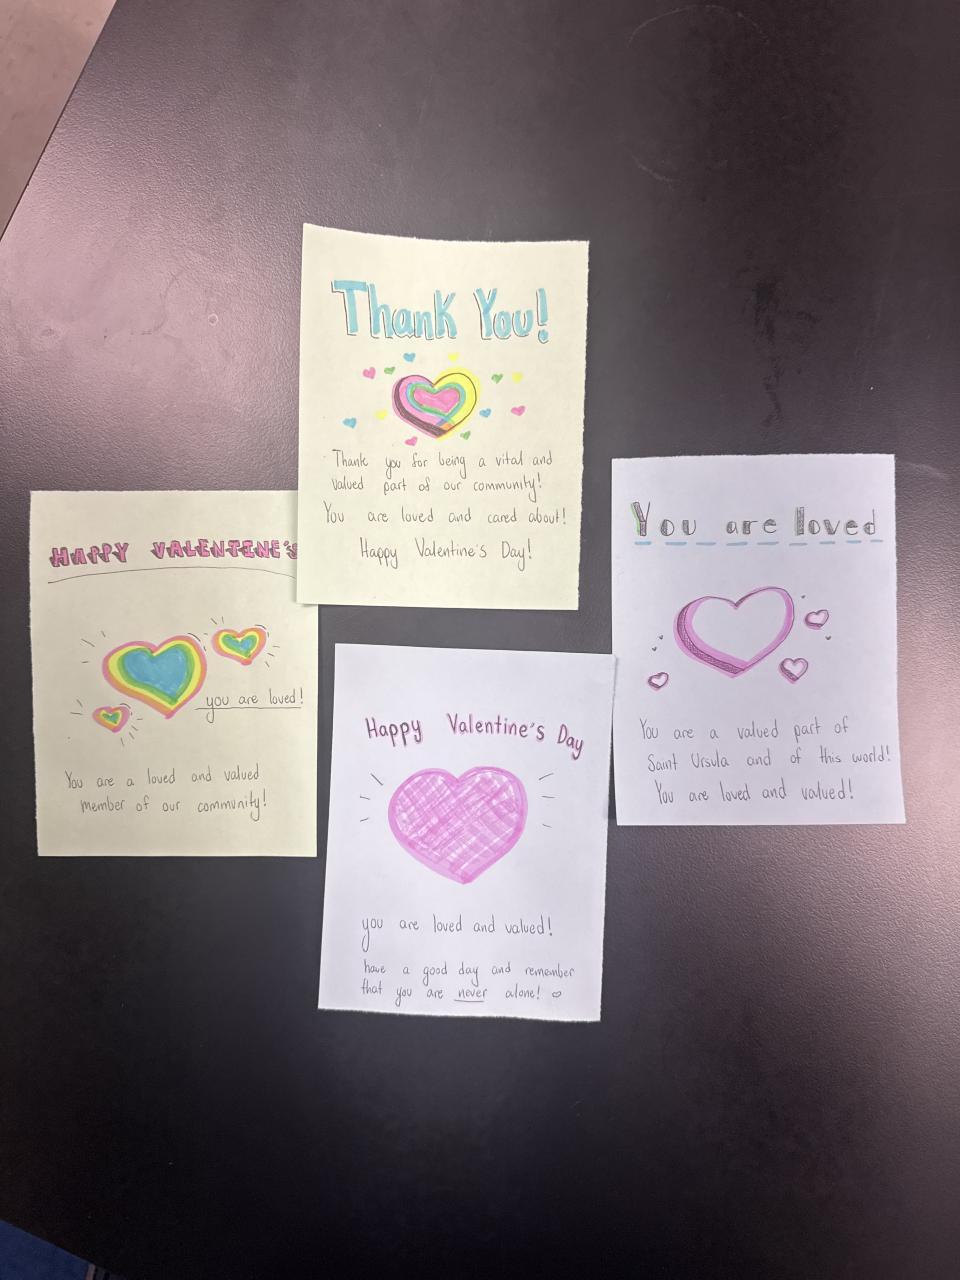 Thank You!
Thank you for being a vital and
valued part of our community!
You are loved and cared about!
Happy Valentine's Day!
HAPPY VALENTINE'S
you are loved!
You are a loved and valued
member of our community!
You are loved
You are a valued part of
Saint Ursula and of this world!
You are loved and valued!
Happy Valentine's Day
you are loved and valued!
have a good day and remember
that you are never alone!